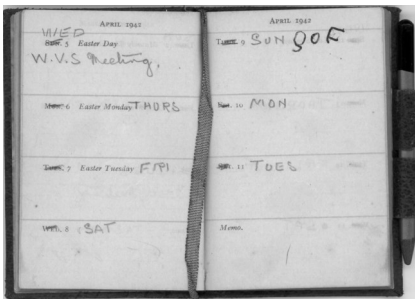 APRIL 1942
WED
Sun. 5 Easter Day
W.V.S Meeting.
Mon. 6 Easter Monday THURS
Tues. 7 Easter Tuesday FRI
Wed. 8 SAT
APRIL 1942
Thurs. 9 SUN JOE
Fri. 10 MON
Sat. 11 TUES
Memo.